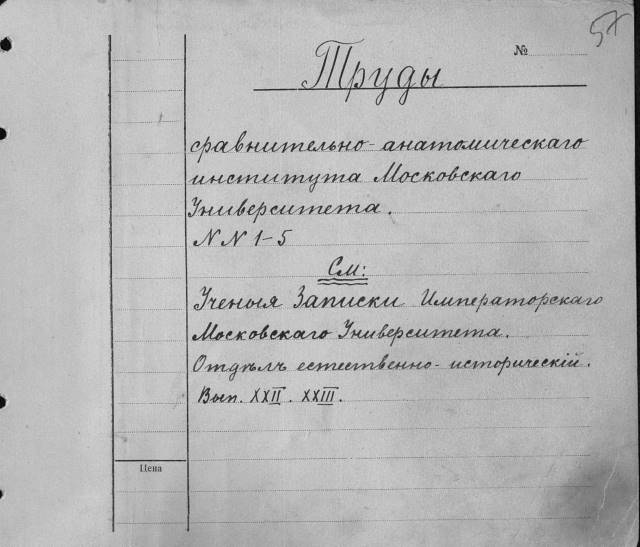 57
№
Труды
сравнительно-анатомическаго
института Московскаго
Университета.
NN 1-5
См:
Ученыя Записки Императорскаго
Московскаго Университета.
Отдѣлъ естественно-историческій.
Вып. XXII. XXIII.
Цена